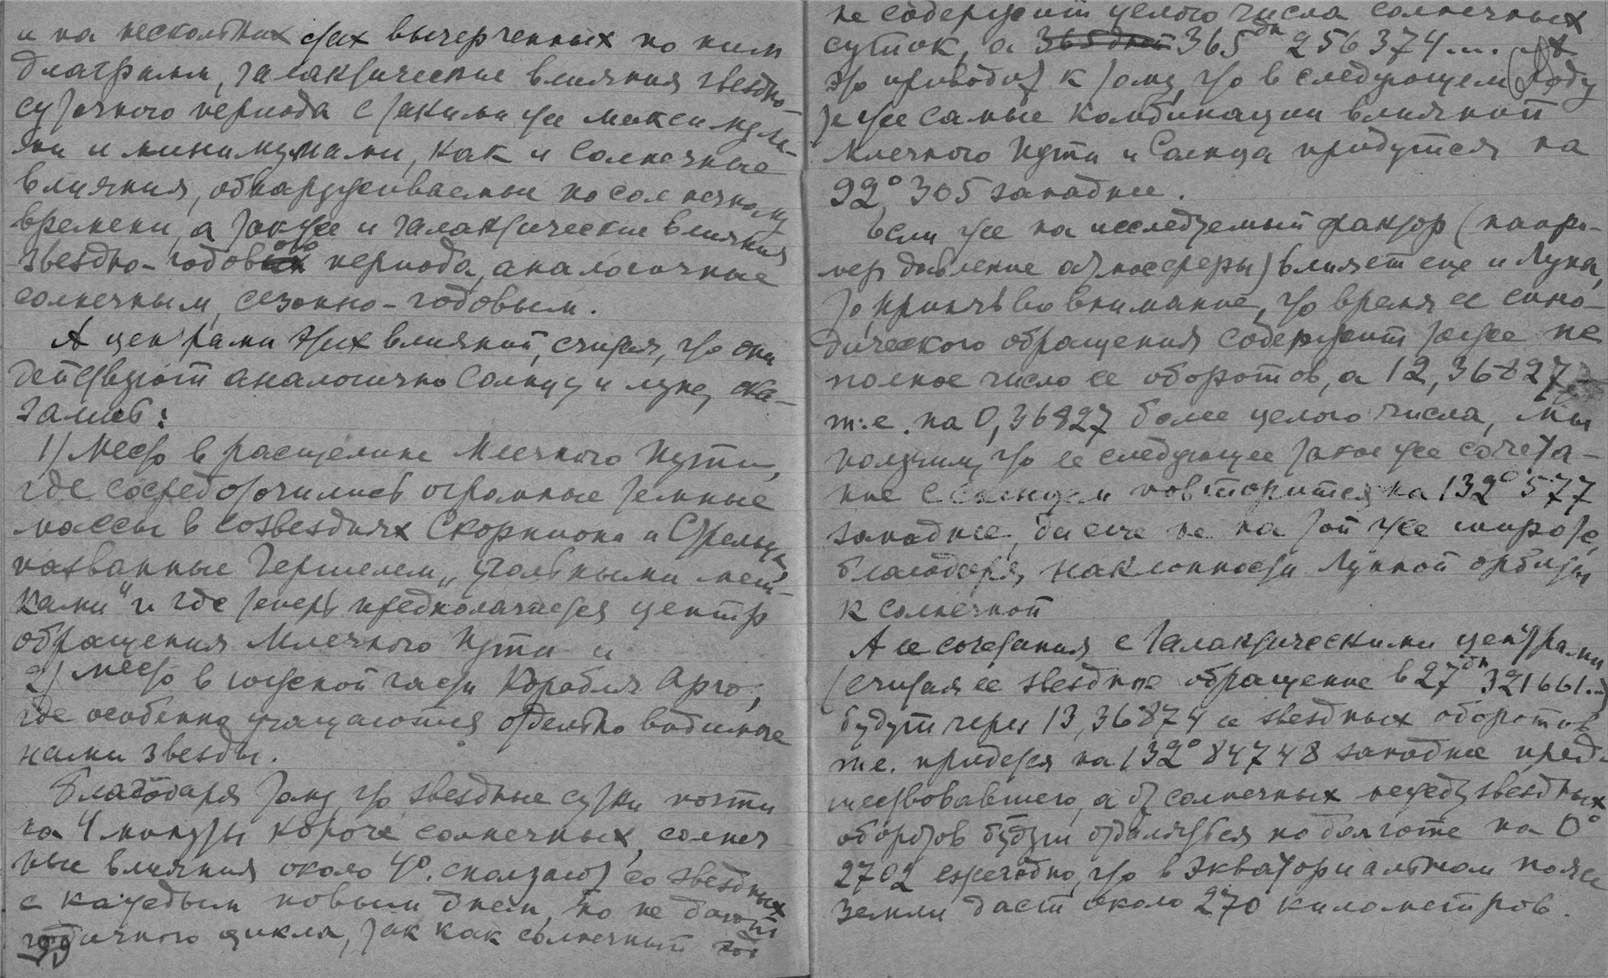 и на нескольких из вычерченных по ним
диаграмм, галактические влияния звездно-
суточного периода с такими же максимума-
ми и минимумами, как и солнечные
влияния, обнаруживаемые по солнечному
времени, а также и галактические влияния
звездно-годового периода, аналогичные
солнечным, сезонно-годовым.
А центрами этих влияний, считая, что они
действуют аналогично Солнцу и луне, ока-
зались:
1) Место в расщелине Млечного Пути,
где сосредоточились огромные темные
массы в созвездиях Скорпиона и Стрельца,
названные Гершелем „угольными меш-
ками" и где теперь предполагается центр
обращения Млечного Пути и
2) место в южской части Корабля Арго,
где особенно сгущаются отдельно видимые
нами звезды.
Благодаря тому, что звездные сутки почти
на 4 минуты короче солнечных, солнеч
ные влияния около 4°. сползают со звездных
с каждым новым днем, но не дают
годичного цикла, так как солнечный год
99
не содержит целого числа солнечных
суток, а 365 дней 365дн 256374....
это приводит к тому, что в следующем году
те же самые комбинации влияний
Млечного Пути и Солнца придутся на
92°,305 западнее.
Если же на исследуемый фактор (напри-
мер давление атмосферы) влияет еще и Луна,
то, приняв во внимание, что время ее сино-
дического обращения содержит тоже не
полное число ее оборотов, а 12,36827
т.е. на 0,36827 более целого числа, мы
получим, что ее следующее такое же сочета-
ние с солнцем повторится на 132°577
западнее, да еще не на той же широте,
благодаря, наклонности Лунной орбиты
к солнечной
А ее сочетания с галактическими центрами
(считая ее звездное обращение в 27дн 321661..)
будут через 13,36874 ее звездных оборотов
т.е. придется на 132°84748 западнее пред-
шествовавшего, а от солнечных пефеду звездных
оборотов будут отдаляться по долготе на 0°
2702 ежегодно, что в экваториальном поясе
Земли даст около 270 километров.